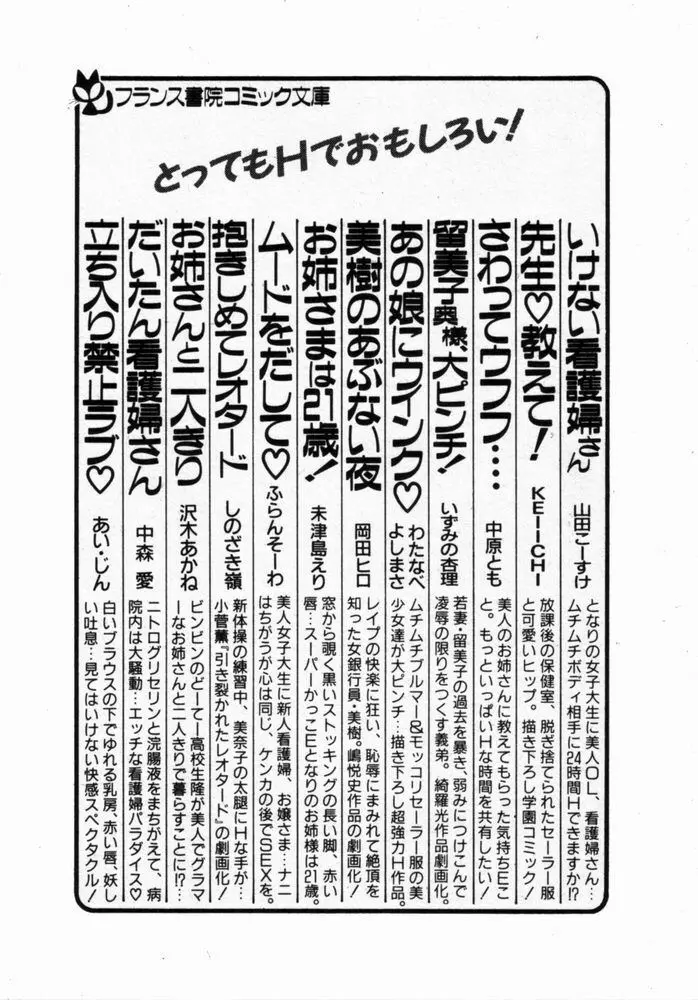 フランス書院コミック文庫
とってもHでおもしろい!
いけない看護婦さん
山田こーすけ
となりの女子大生に美人OL、看護婦さん…
ムチムチボディ相手に24時間Hできますか!?
先生♡教えて!
KEIICHI
放課後の保健室、脱ぎ捨てられたセーラー服
と可愛いヒップ。描き下ろし学園コミック!
さわってウフフ‥‥
中原とも
美人のお姉さんに教えてもらった気持ちEこ
と。もっといっぱいHな時間を共有したい!
留美子奥様、大ピンチ!
いずみの杏理
若妻・留美子の過去を暴き、弱みにつけこんで
凌辱の限りをつくす義弟。綺羅光作品劇画化。
あの娘にウインク♡
わたなべ
よしまさ
ムチムチブルマー&モッコリセーラー服の美
少女達が大ピンチ…描き下ろし超強力H作品。
美樹のあぶない夜
岡田ヒロ
レイプの快楽に狂い、恥辱にまみれて絶頂を
知った女銀行員・美樹。嶋悦史作品の劇画化!
お姉さまは21歳!
未津島えり
窓から覗く黒いストッキングの長い脚、赤い
唇…スーパーかっこEとなりのお姉様は21歳。
ムードをだして♡
ふらんそーわ
美人女子大生に新人看護婦、お嬢さま…ナニ
はちがうが心は同じ、ケンカの後でSEXを。
抱きしめてレオタード
しのざき嶺
新体操の練習中、美奈子の太腿にHな手が…
小菅薫『引き裂かれたレオタード』の劇画化!
お姉さんと二人きり
沢木あかね
ビンビンのどーてー高校生隆が美人でグラマ
ーなお姉さんと二人きりで暮らすことに!?…
だいたん看護婦さん
中森 愛
ニトログリセリンと浣腸液をまちがえて、病
院内は大騒動…エッチな看護婦パラダイス♡
立ち入り禁止ラブ♡
あい・じん
白いブラウスの下でゆれる乳房、赤い唇、妖し
い吐息…見てはいけない快感スペクタクル!